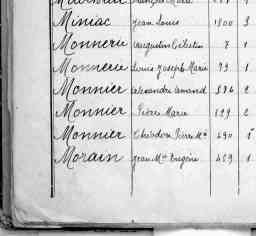 Miniac Jean Louis 1800 3
Monnerie Augustin Célestin 7 1
Monnerie Louis Joseph Marie 99 1
Monnier Alexandre Armand 2
Monnier Pierre Marie 2
Monnier Théodore Pierre Mie 490 1
Morain Jean Mie Eugène 459 1